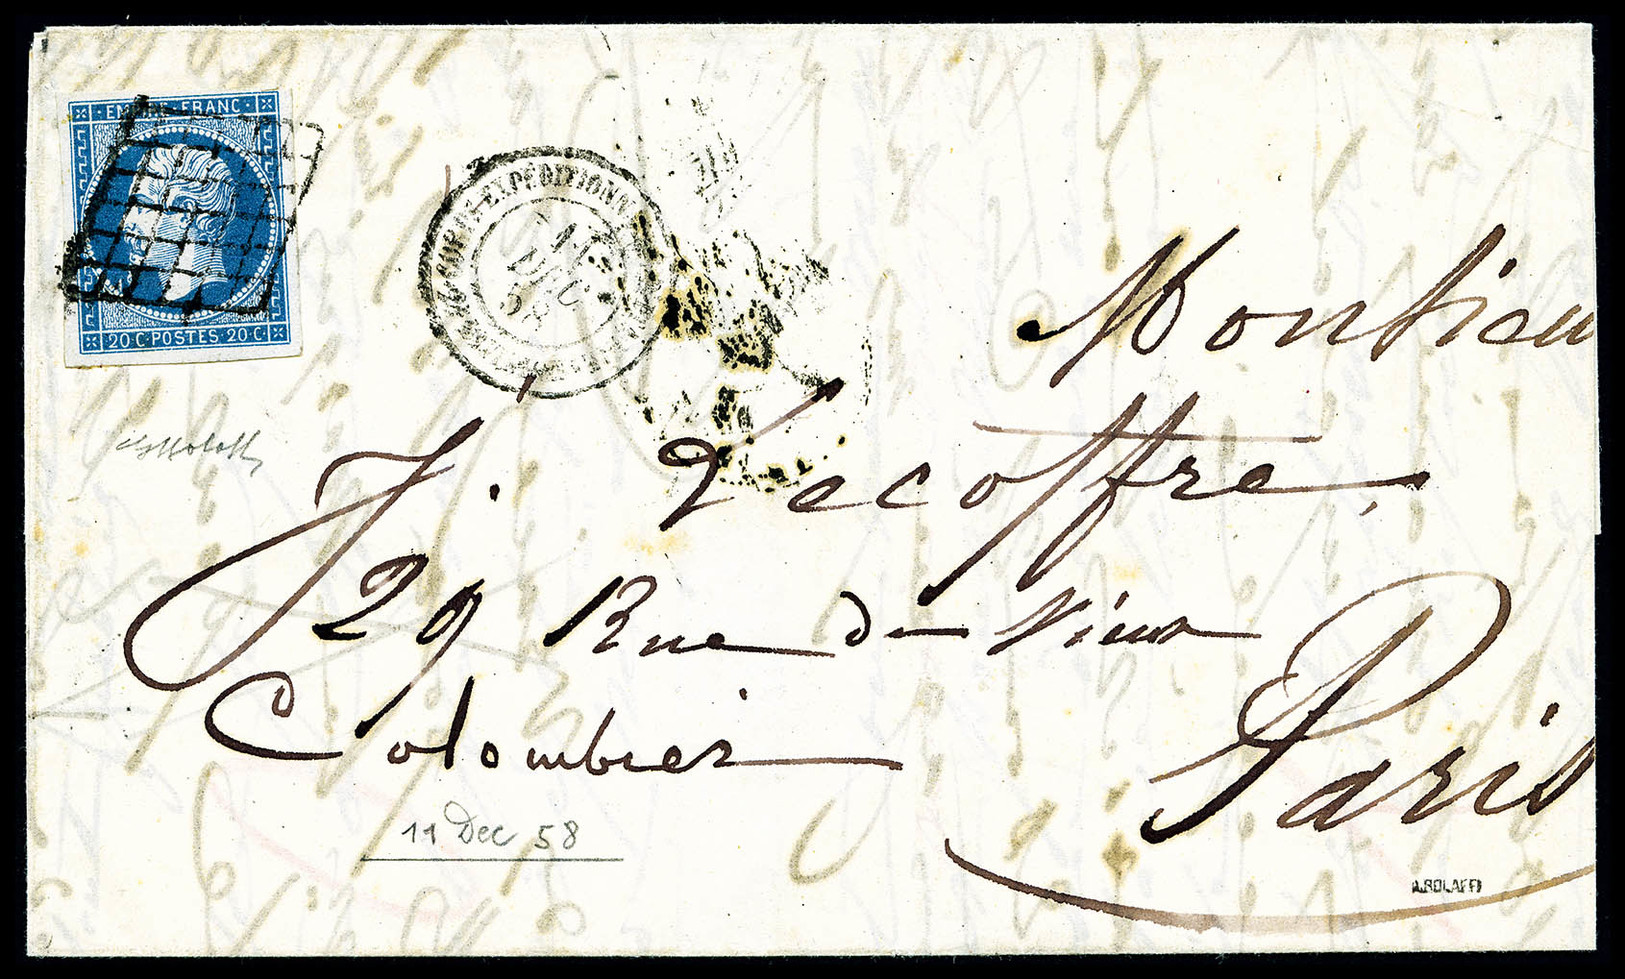 EMPIRE FRANC
20 C · POSTES 20 C ·
CORPS EXPÉDITIONN
11
DEC
58
Monsieu
J. Lecoffre
29 Rue du Vieux
Colombier
Paris
11 Dec 58
A. BOLAFFI